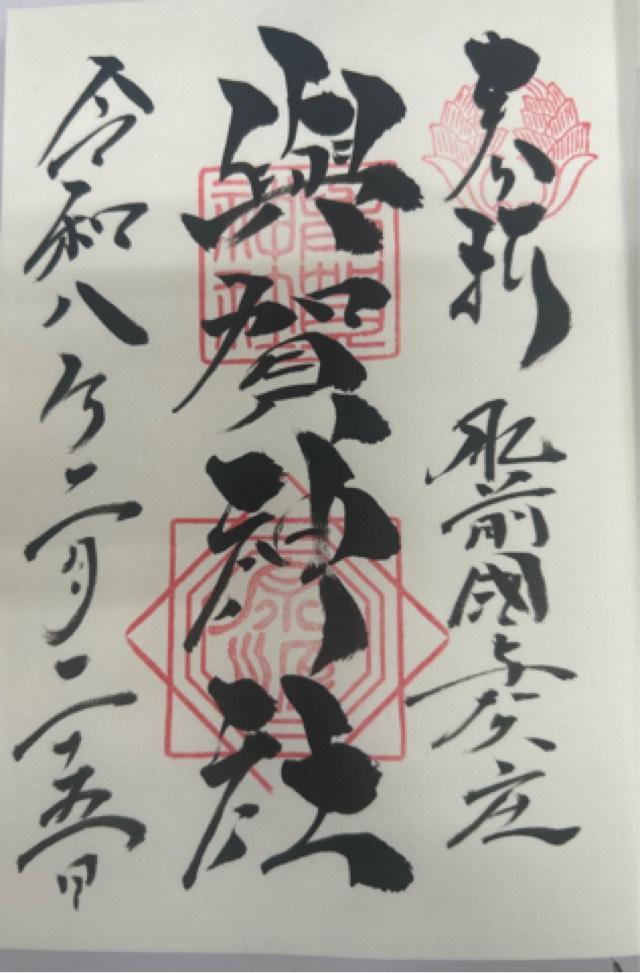 奉拝 肥前國與賀庄
與賀神社
令和八年二月二十五日